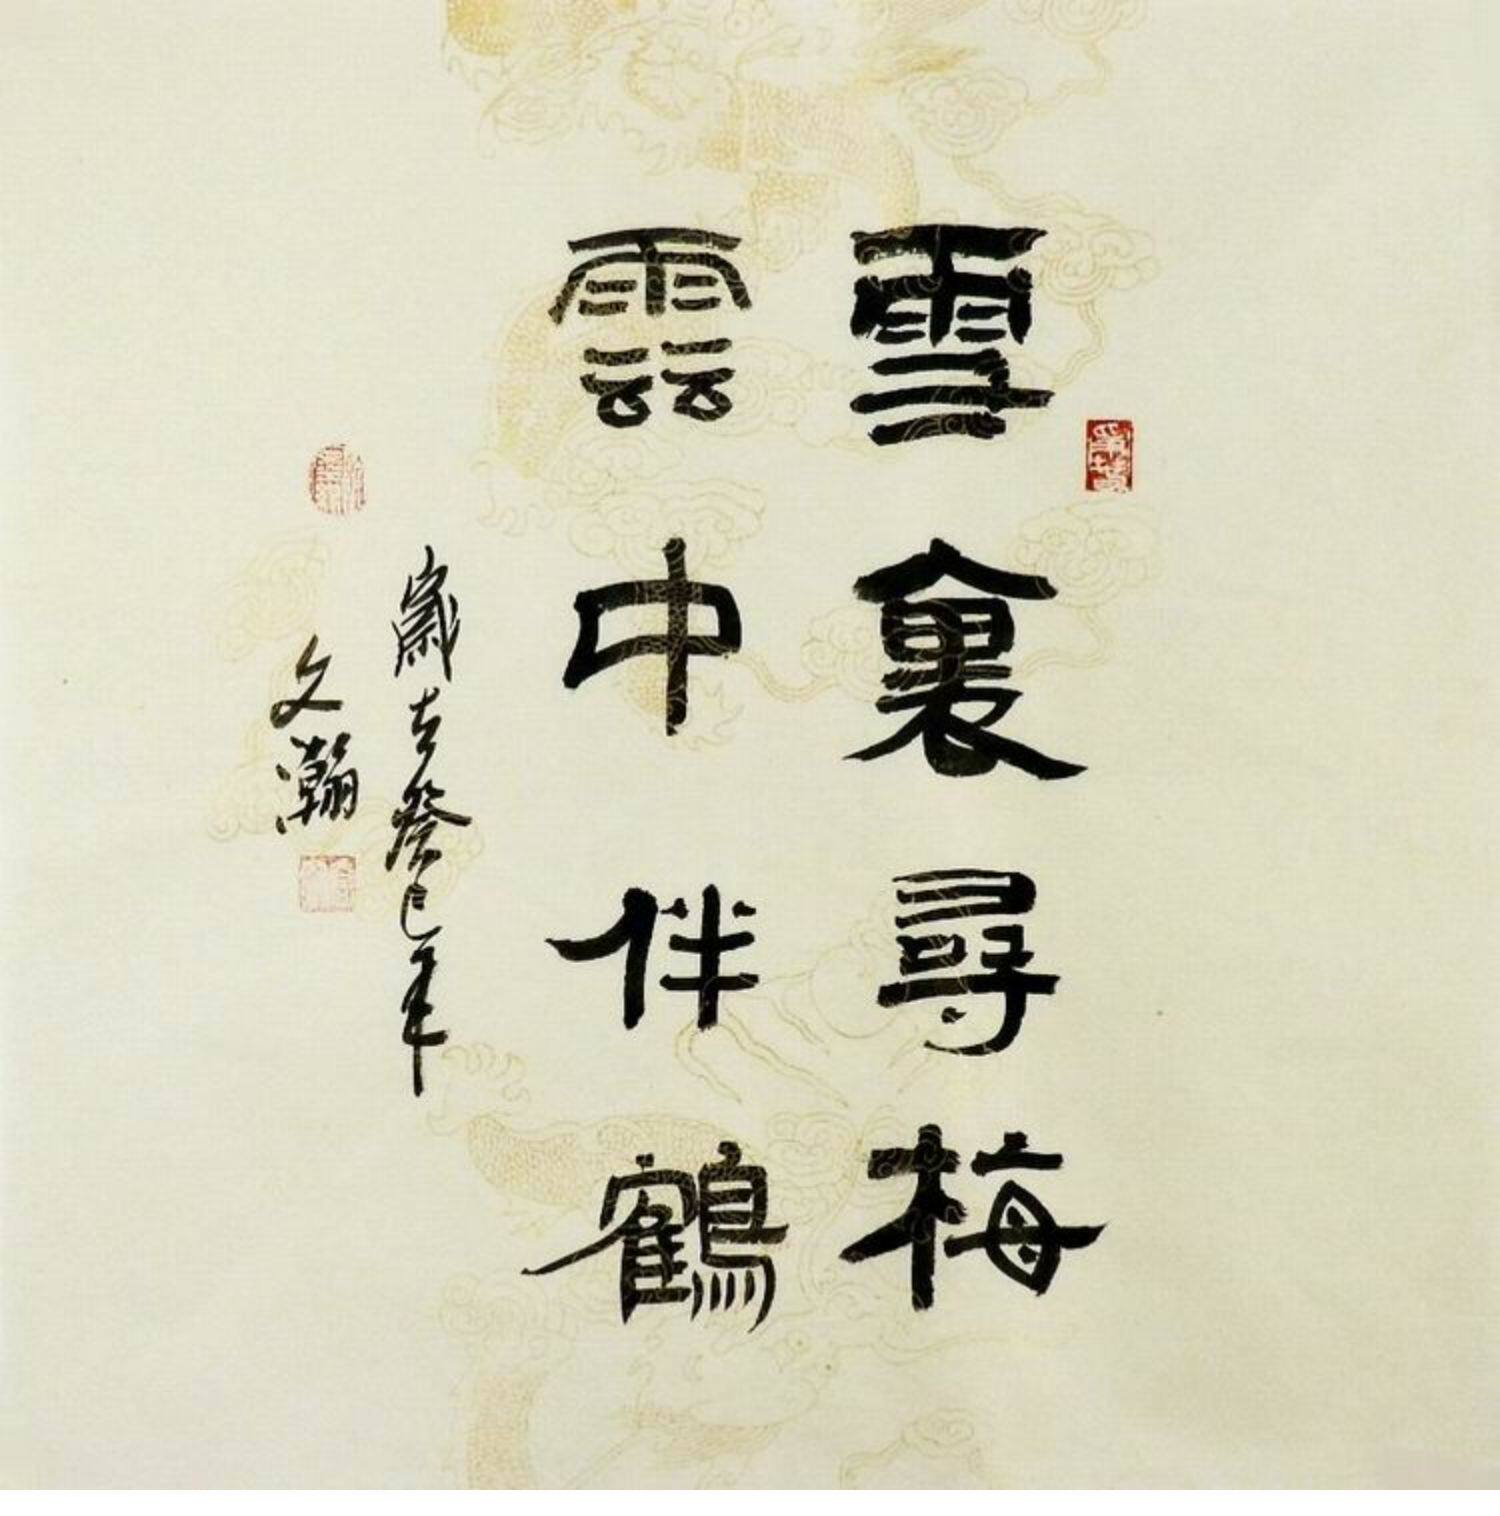 雪裏尋梅
雲中伴鶴
歲在癸巳年
文瀚